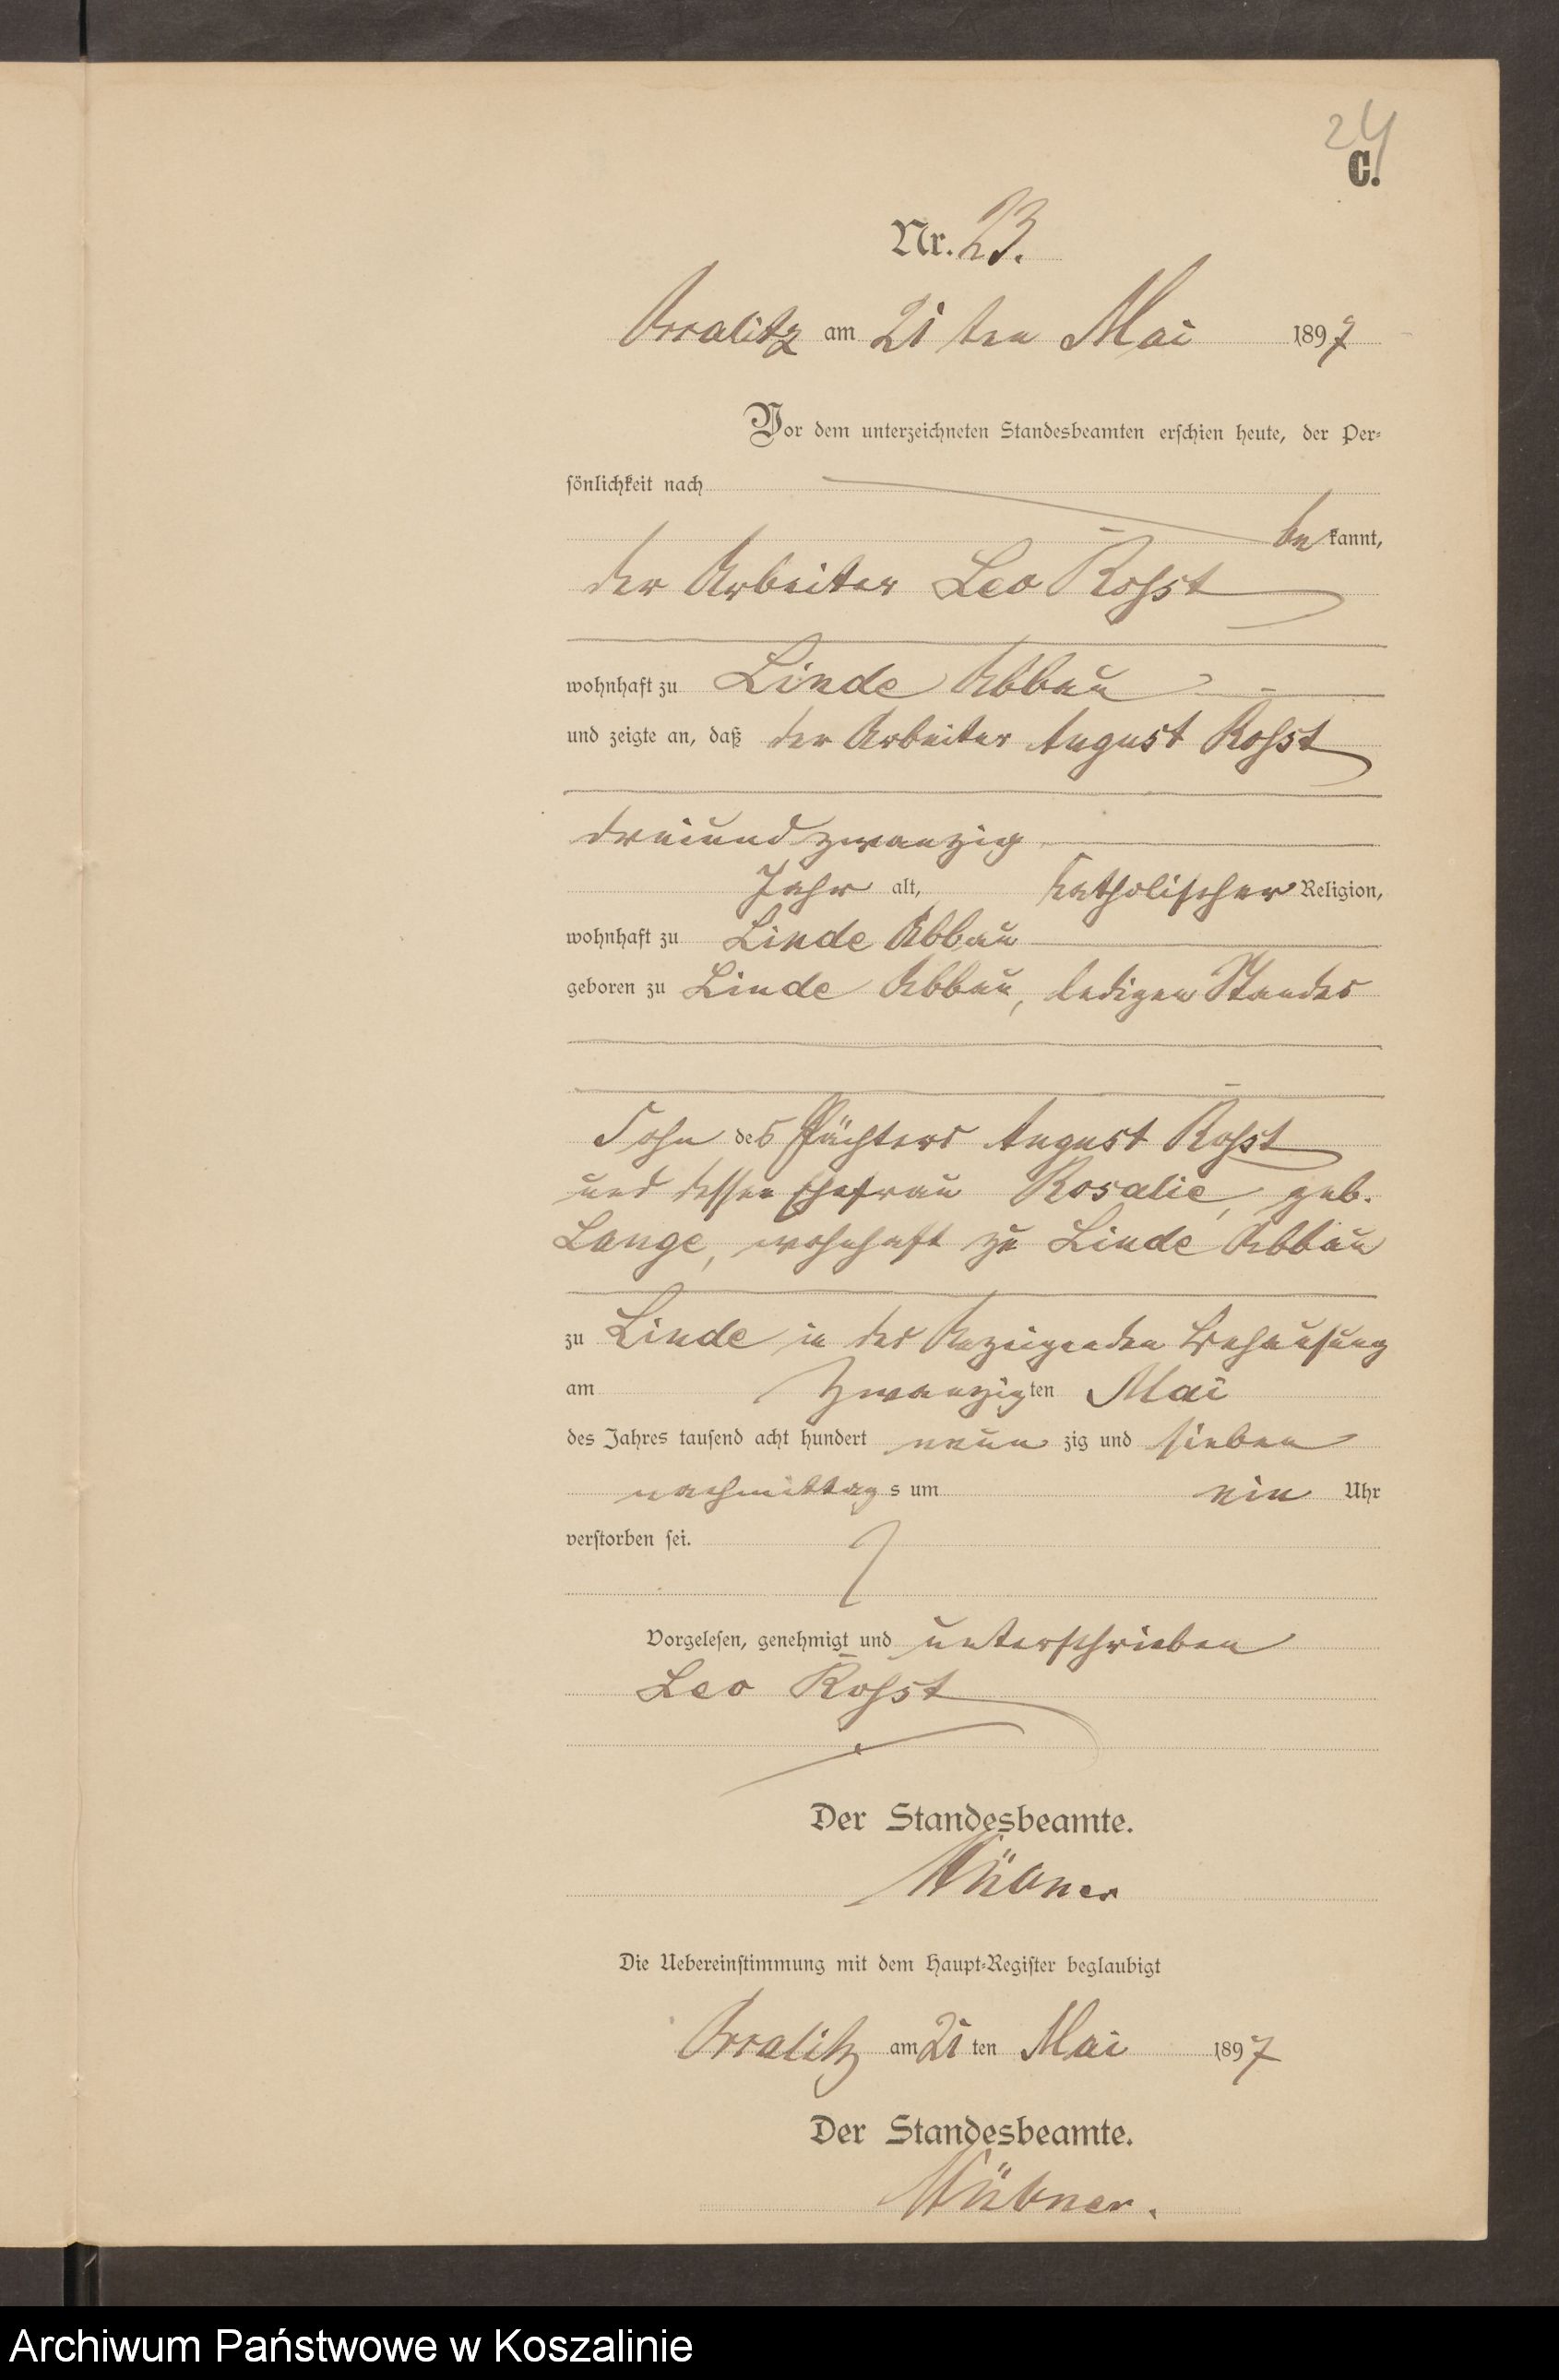 24
C.
Nr. 23.
am 21 ten Mai 1897
Vor dem unterzeichneten Standesbeamten erschien heute, der Per-
sönlichkeit nach
be kannt,
der Arbeiter Leo Roſst
wohnhaft zu Linde Abbau
und zeigte an, daß der Arbeiter August Roſst
dreiundzwanzig
Jahr alt, katholischer Religion,
wohnhaft zu Linde Abbau
geboren zu Linde Abbau, ledigen Standes
Sohn des Pächters August Roſst
und dessen Ehefrau Rosalie, geb.
Lange, wohnhaft zu Linde Abbau
zu Linde in des Anzeigenden Behausung
am zwanzigten Mai
des Jahres tausend acht hundert neun zig und sieben
nachmittag s um ein Uhr
verstorben sei.
Vorgelesen, genehmigt und unterschrieben
Leo Roſst
Der Standesbeamte.
Hübner
Die Uebereinstimmung mit dem Haupt-Register beglaubigt
am 21 ten Mai 1897
Der Standesbeamte.
Hübner.
Archiwum Państwowe w Koszalinie